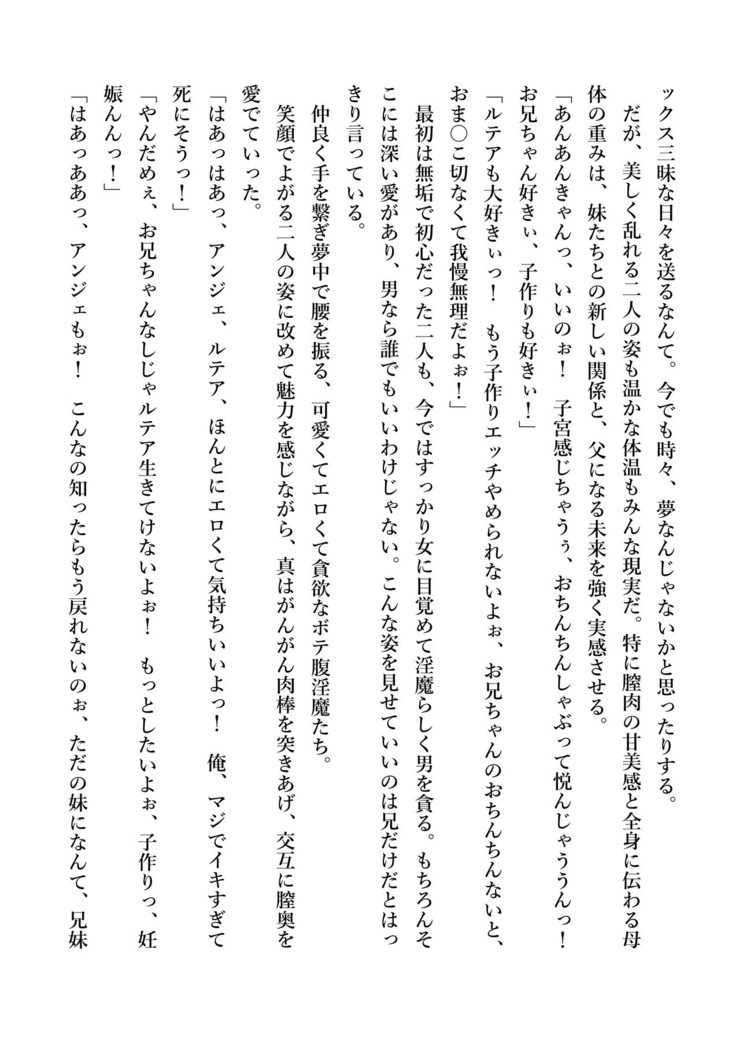 ックス三昧な日々を送るなんて。今でも時々、夢なんじゃないかと思ったりする。
だが、美しく乱れる二人の姿も温かな体温もみんな現実だ。特に膣肉の甘美感と全身に伝わる母
体の重みは、妹たちとの新しい関係と、父になる未来を強く実感させる。
「あんあんきゃんっ、いいのぉ！　子宮感じちゃうぅ、おちんちんしゃぶって悦んじゃううんっ！
お兄ちゃん好きぃ、子作りも好きぃ！」
「ルテアも大好きぃっ！　もう子作りエッチやめられないよぉ、お兄ちゃんのおちんちんないと、
おま○こ切なくて我慢無理だよぉ！」
最初は無垢で初心だった二人も、今ではすっかり女に目覚めて淫魔らしく男を貪る。もちろんそ
こには深い愛があり、男なら誰でもいいわけじゃない。こんな姿を見せていいのは兄だけだとはっ
きり言っている。
仲良く手を繋ぎ夢中で腰を振る、可愛くてエロくて貪欲なボテ腹淫魔たち。
笑顔でよがる二人の姿に改めて魅力を感じながら、真はがんがん肉棒を突きあげ、交互に膣奥を
愛でていった。
「はあっはあっ、アンジェ、ルテア、ほんとにエロくて気持ちいいよっ！　俺、マジでイキすぎて
死にそうっ！」
「やんだめぇ、お兄ちゃんなしじゃルテア生きてけないよぉ！　もっとしたいよぉ、子作りっ、妊
娠んんっ！」
「はあっああっ、アンジェもぉ！　こんなの知ったらもう戻れないのぉ、ただの妹になんて、兄妹